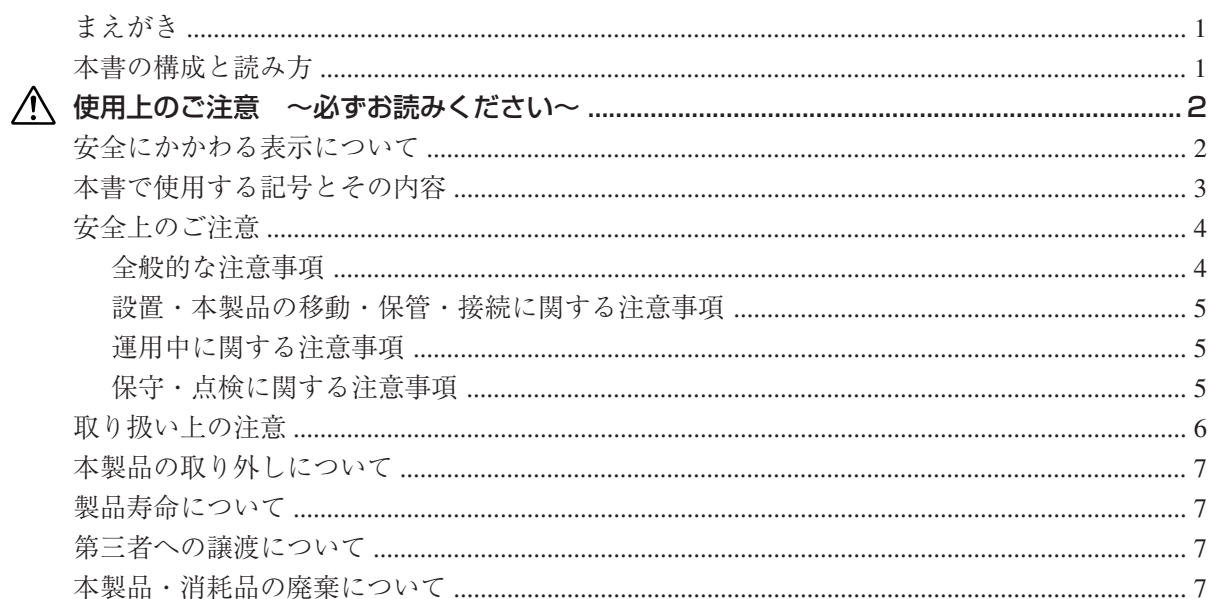 まえがき ........ 1
本書の構成と読み方 ........ 1
使用上のご注意　～必ずお読みください～ ........ 2
安全にかかわる表示について ........ 2
本書で使用する記号とその内容 ........ 3
安全上のご注意 ........ 4
全般的な注意事項 ........ 4
設置・本製品の移動・保管・接続に関する注意事項 ........ 5
運用中に関する注意事項 ........ 5
保守・点検に関する注意事項 ........ 5
取り扱い上の注意 ........ 6
本製品の取り外しについて ........ 7
製品寿命について ........ 7
第三者への譲渡について ........ 7
本製品・消耗品の廃棄について ........ 7